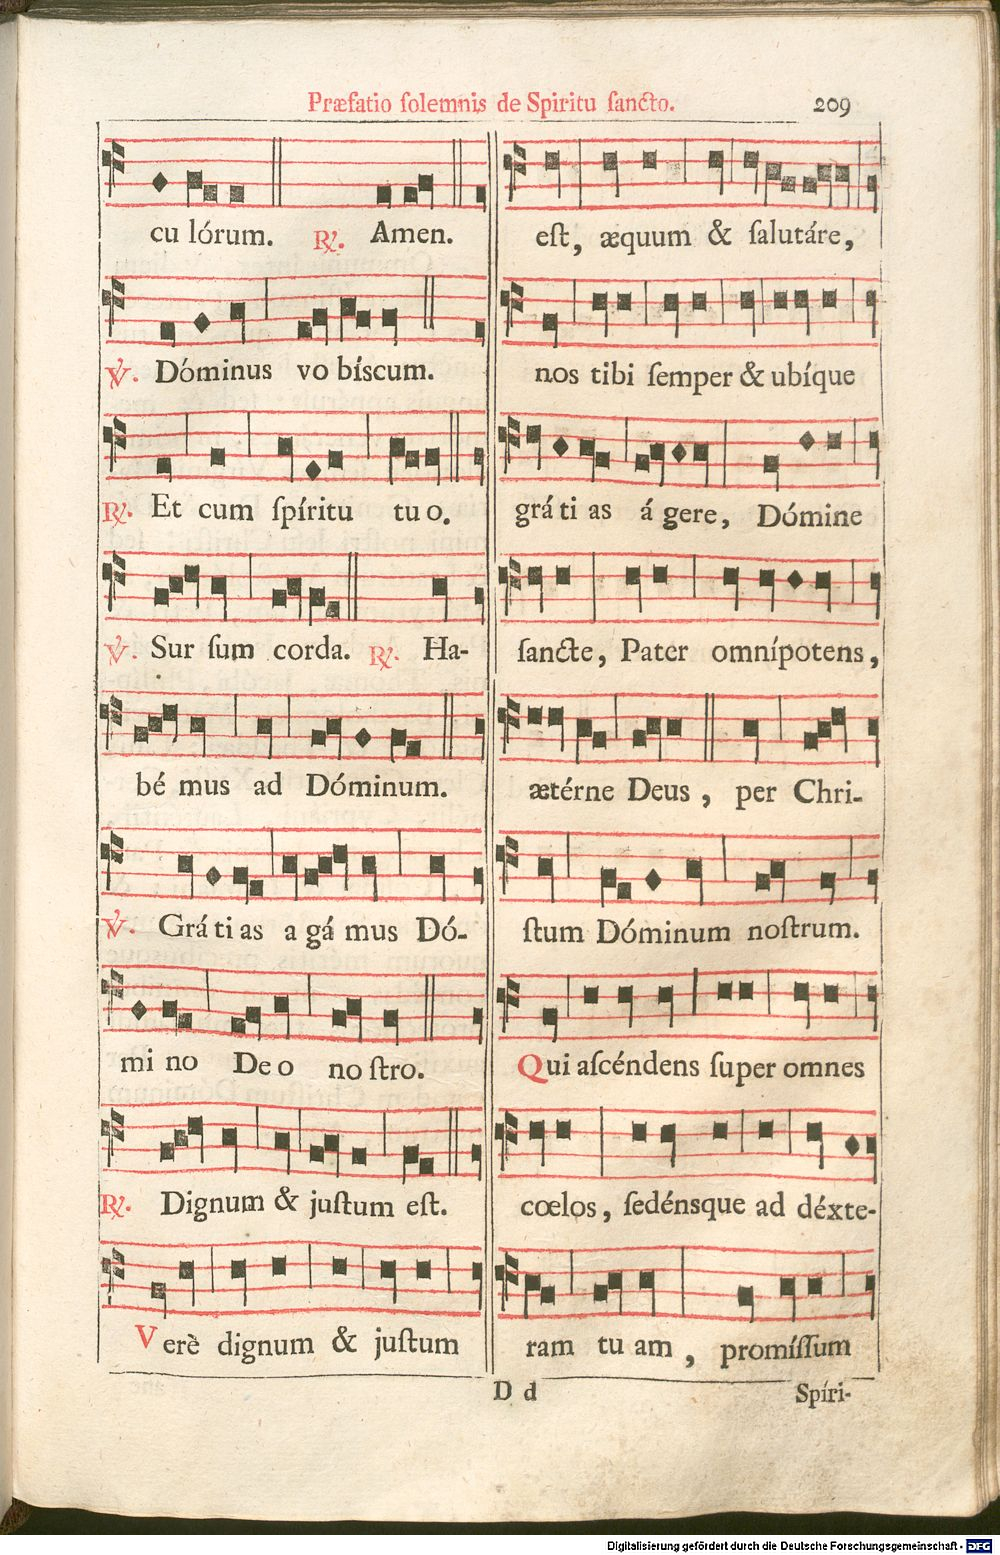 Præfatio ſolemnis de Spiritu ſancto. 209
cu lórum. ℟. Amen.
℣. Dóminus vo bíscum.
℟. Et cum ſpíritu tu o.
℣. Sur ſum corda. ℟. Ha-
bé mus ad Dóminum.
℣. Grá ti as a gá mus Dó-
mi no De o no ſtro.
℟. Dignum & juſtum eſt.
Verè dignum & juſtum
eſt, æquum & ſalutáre,
nos tibi ſemper & ubíque
grá ti as á gere, Dómine
ſancte, Pater omnípotens,
ætérne Deus, per Chri-
ſtum Dóminum noſtrum.
Qui aſcéndens ſuper omnes
cœlos, ſedénsque ad déxte-
ram tu am, promíſſum
D d Spíri-
Digitalisierung gefördert durch die Deutsche Forschungsgemeinschaft - DFG